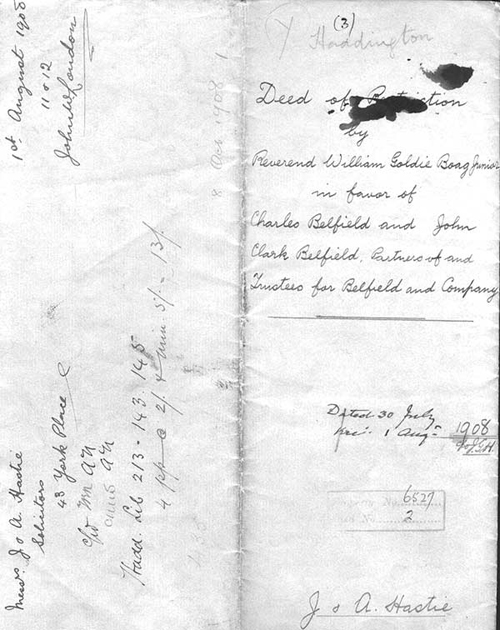 (3)
Haddington
Deed of
by
Reverend William Goldie Boag Junior
in favor of
Charles Belfield and John
Clark Belfield, Partners of and
Trustees for Belfield and Company
Dated 30 July
1 Aug. 1908
6527
2
J & A. Hastie
1st August 1908
11 & 12
John W London
8 Aug 1908
Messrs J & A. Hastie
Solicitors
43 York Place
Hadd. Lib 213 - 143. 145
4 pp @ 2/.